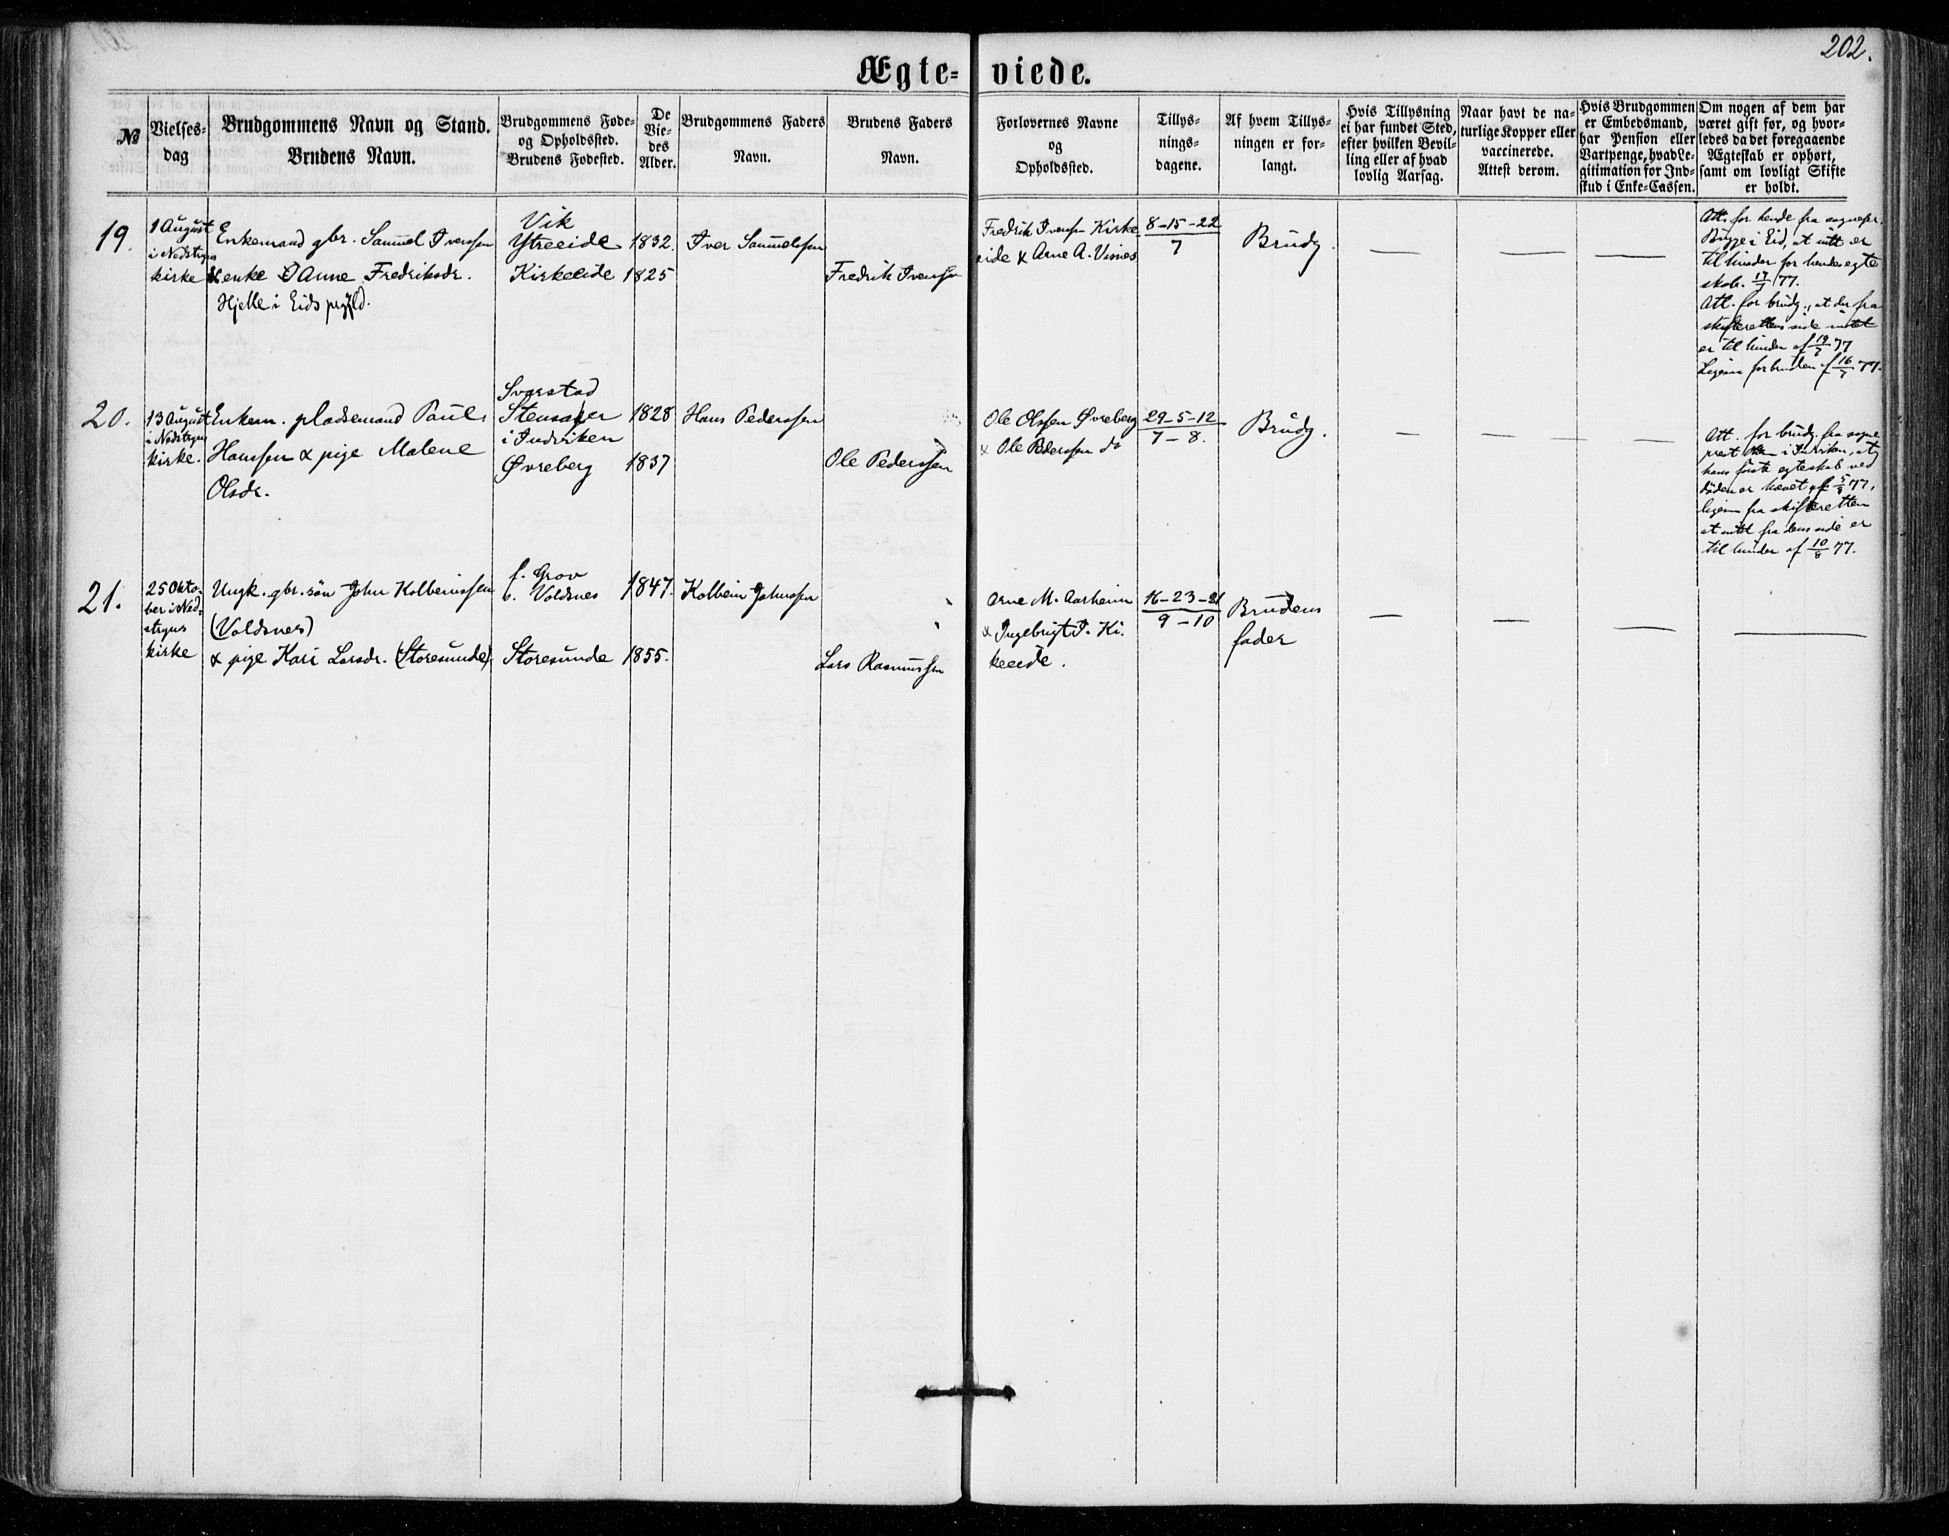 202.
Ægte- viede.
№
Vielses-
dag
Brudgommens Navn og Stand.
Brudens Navn.
Brudgommens Føde-
og Opholdssted.
Brudens Fødested.
De
Vie-
des
Alder.
Brudgommens Faders
Navn.
Brudens Faders
Navn.
Forlovernes Navne
og
Opholdssted.
Tillys-
nings-
dagene.
Af hvem Tillys-
ningen er for-
langt.
Hvis Tillysning
ei har fundet Sted,
efter hvilken Bevil-
ling eller af hvad
lovlig Aarsag.
Naar havt de na-
turlige Kopper eller
vaccinerede.
Attest derom.
Hvis Brudgommen
er Embedsmand,
har Pension eller
Vartpenge, hvad Le-
gitimation for Ind-
skud i Enke-Cassen.
Om nogen af dem har
været gift før, og hvor-
ledes da det foregaaende
Ægteskab er ophørt,
samt om lovligt Skifte
er holdt.
19.
1 August
i Nedstryns
kirke
Enkemand gbr. Samuel Iverssen
& enke Anne Fredriksdr.
Hjelle i Eids prgjld.
Vik
Ytreeide
Kirkeeide
1832.
1825
Iver Samuelssen
Fredrik Iverssen
Fredrik Iverssen Kirke
eide & Arne A. Vinnes
8-15-22
7
Brudg.
— — —
Att. for hende fra sognepr.
Bugge i Eid, at intet er
til hinder for hendes egte
skab. 17/7 77.
Att. for brudg., at der fra
skifterettens side intet
er til hinder af 19/7 77
Ligesaa for bruden af 16/7 77.
20.
13 August
i Nedstryns
kirke.
Enkem. pladsemand Paul
Hanssen & pige Malene
Olsdr.
Svarstad
Stensaker
i Indviken
Øvreberg
1828
1837
Hans Pederssen
Ole Pederssen
Ole Olssen Øvreberg
& Ole Pederssen do
29-5-12
7-8.
Brudg.
— — — —
Att. for brudg. fra sogne
prest i Indviken, at
hans første egteskab ved
døden er hævet af 5/8 77,
ligesaa fra skifteretten
at intet fra dens side er
til hinder af 10/8 77.
21.
25 Okto-
ber i Ned-
stryns
kirke
Ungk. gbr. søn John Kolbeinssen
(Voldsnes)
& pige Kari Larsdr. (Storesunde)
f. Grov
b. Voldsnes
Storesunde
1847.
1855.
Kolbein Johnssen
Lars Rasmussen
Arne M. Aarheim
& Ingebrigt J. Ki.
keeide.
16-23-21
9-10
Brudens
fader
— — — —